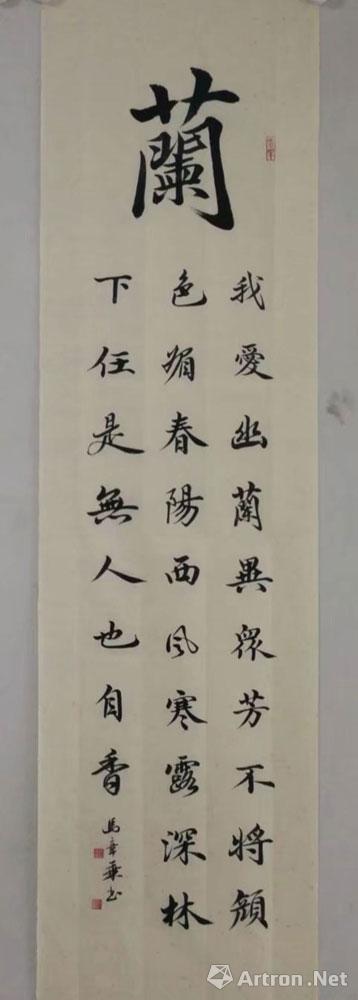 蘭
我愛幽蘭異眾芳不將顏
色媚春陽西風寒露深林
下任是無人也自香
馬章華书
Artron.Net